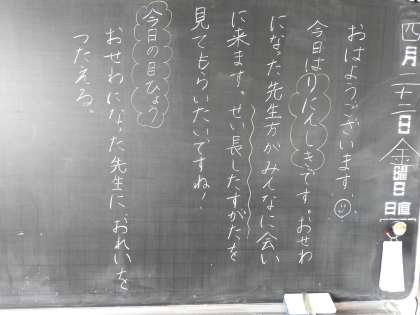 四月二十二日金曜日
日直
おはようございます。
今日はりにんしきです。おせわ
になった先生方がみんなに会い
に来ます。せい長したすがたを
見てもらいたいですね!
今日の目ひょう
おせわになった先生に、おれいを
つたえる。